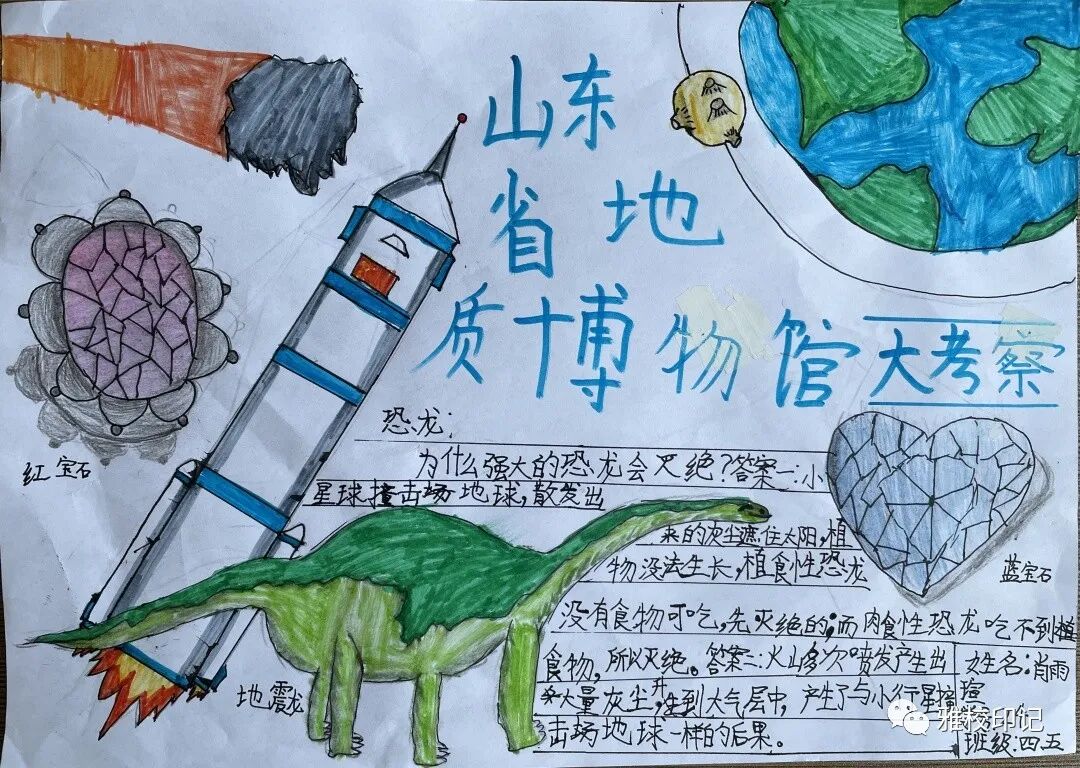 山东
省地
质博物馆大考察
恐龙:
为什么强大的恐龙会灭绝?答案一:小
星球撞击场地球,散发出
来的灰尘遮住太阳,植
物没法生长,植食性恐龙
没有食物可吃,先灭绝的;而肉食性恐龙吃不到植
食物,所以灭绝。答案二:火山多次喷发产生出
来大量灰尘升到大气层中,产生了与小行星撞
击场地球一样的后果。
红宝石
蓝宝石
地震龙
姓名:肖雨
瑄
班级:四五
雅棱印记